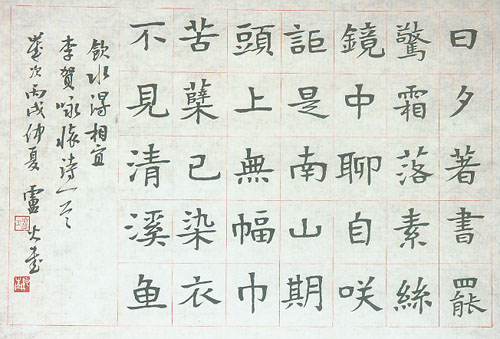 日夕著書罷
驚霜落素絲
鏡中聊自咲
詎是南山期
頭上無幅巾
苦蘗已染衣
不見清溪魚
飲水得相宜
李賀咏懷詩一首
歲次丙戌仲夏 盧